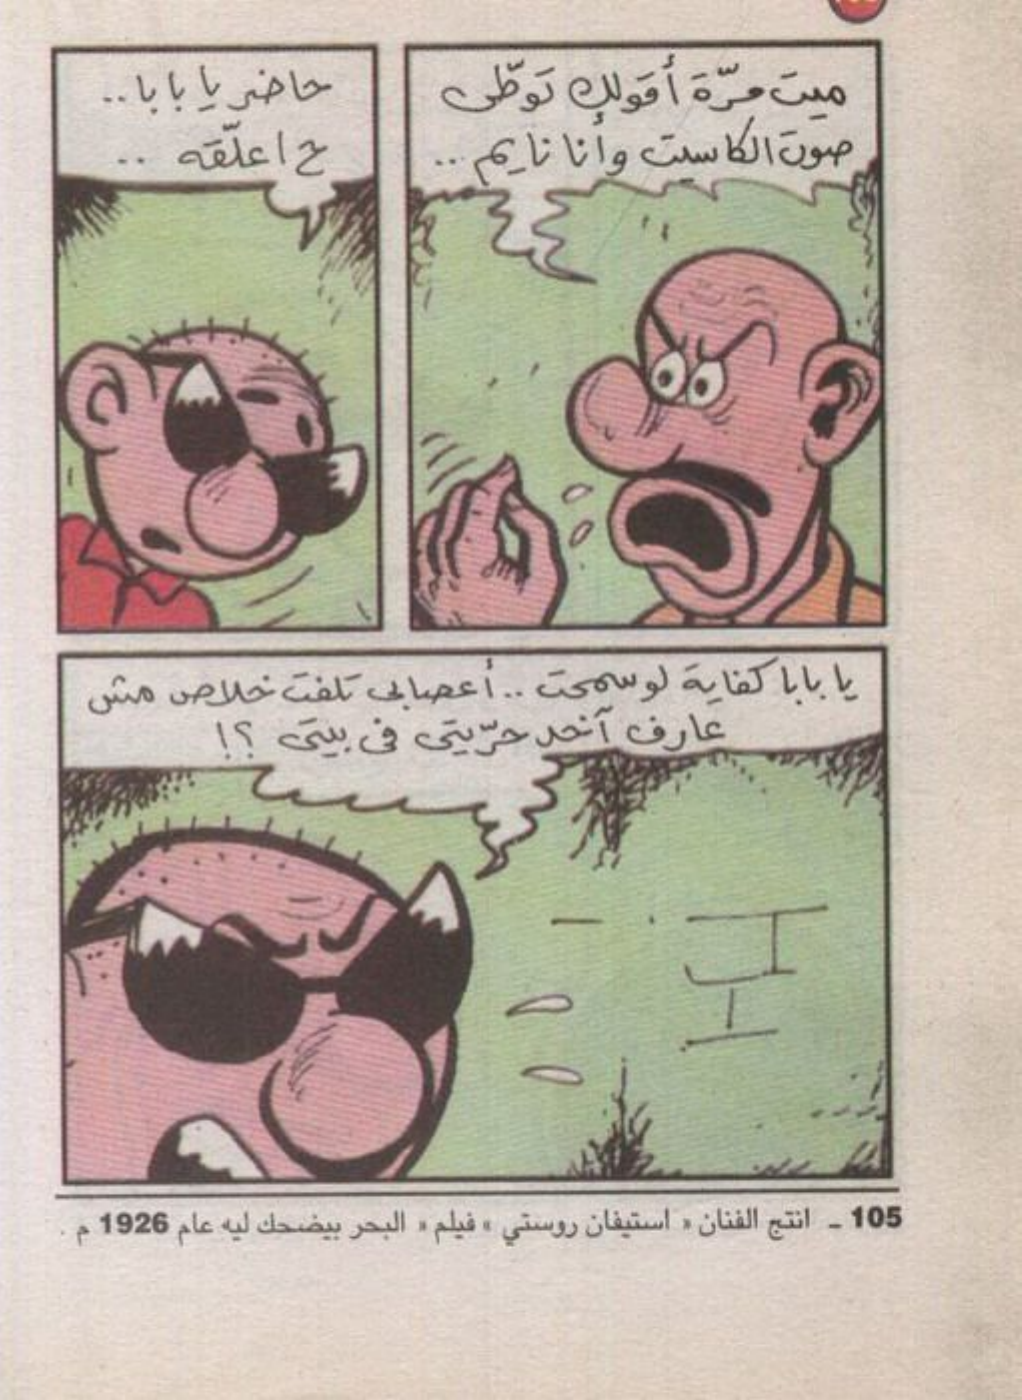 ميت مرّة أقولك توطّى
صوت الكاسيت وأنا نايم ...
حاضر يا بابا ..
ح اعلّقه ..
يا بابا كفاية لو سمحت .. أعصابى تلفت خلاص مش
عارف آخد حرّيتى فى بيتى ؟!
105 ـ انتج الفنان « استيفان روستي » فيلم « البحر بيضحك ليه عام 1926 م .